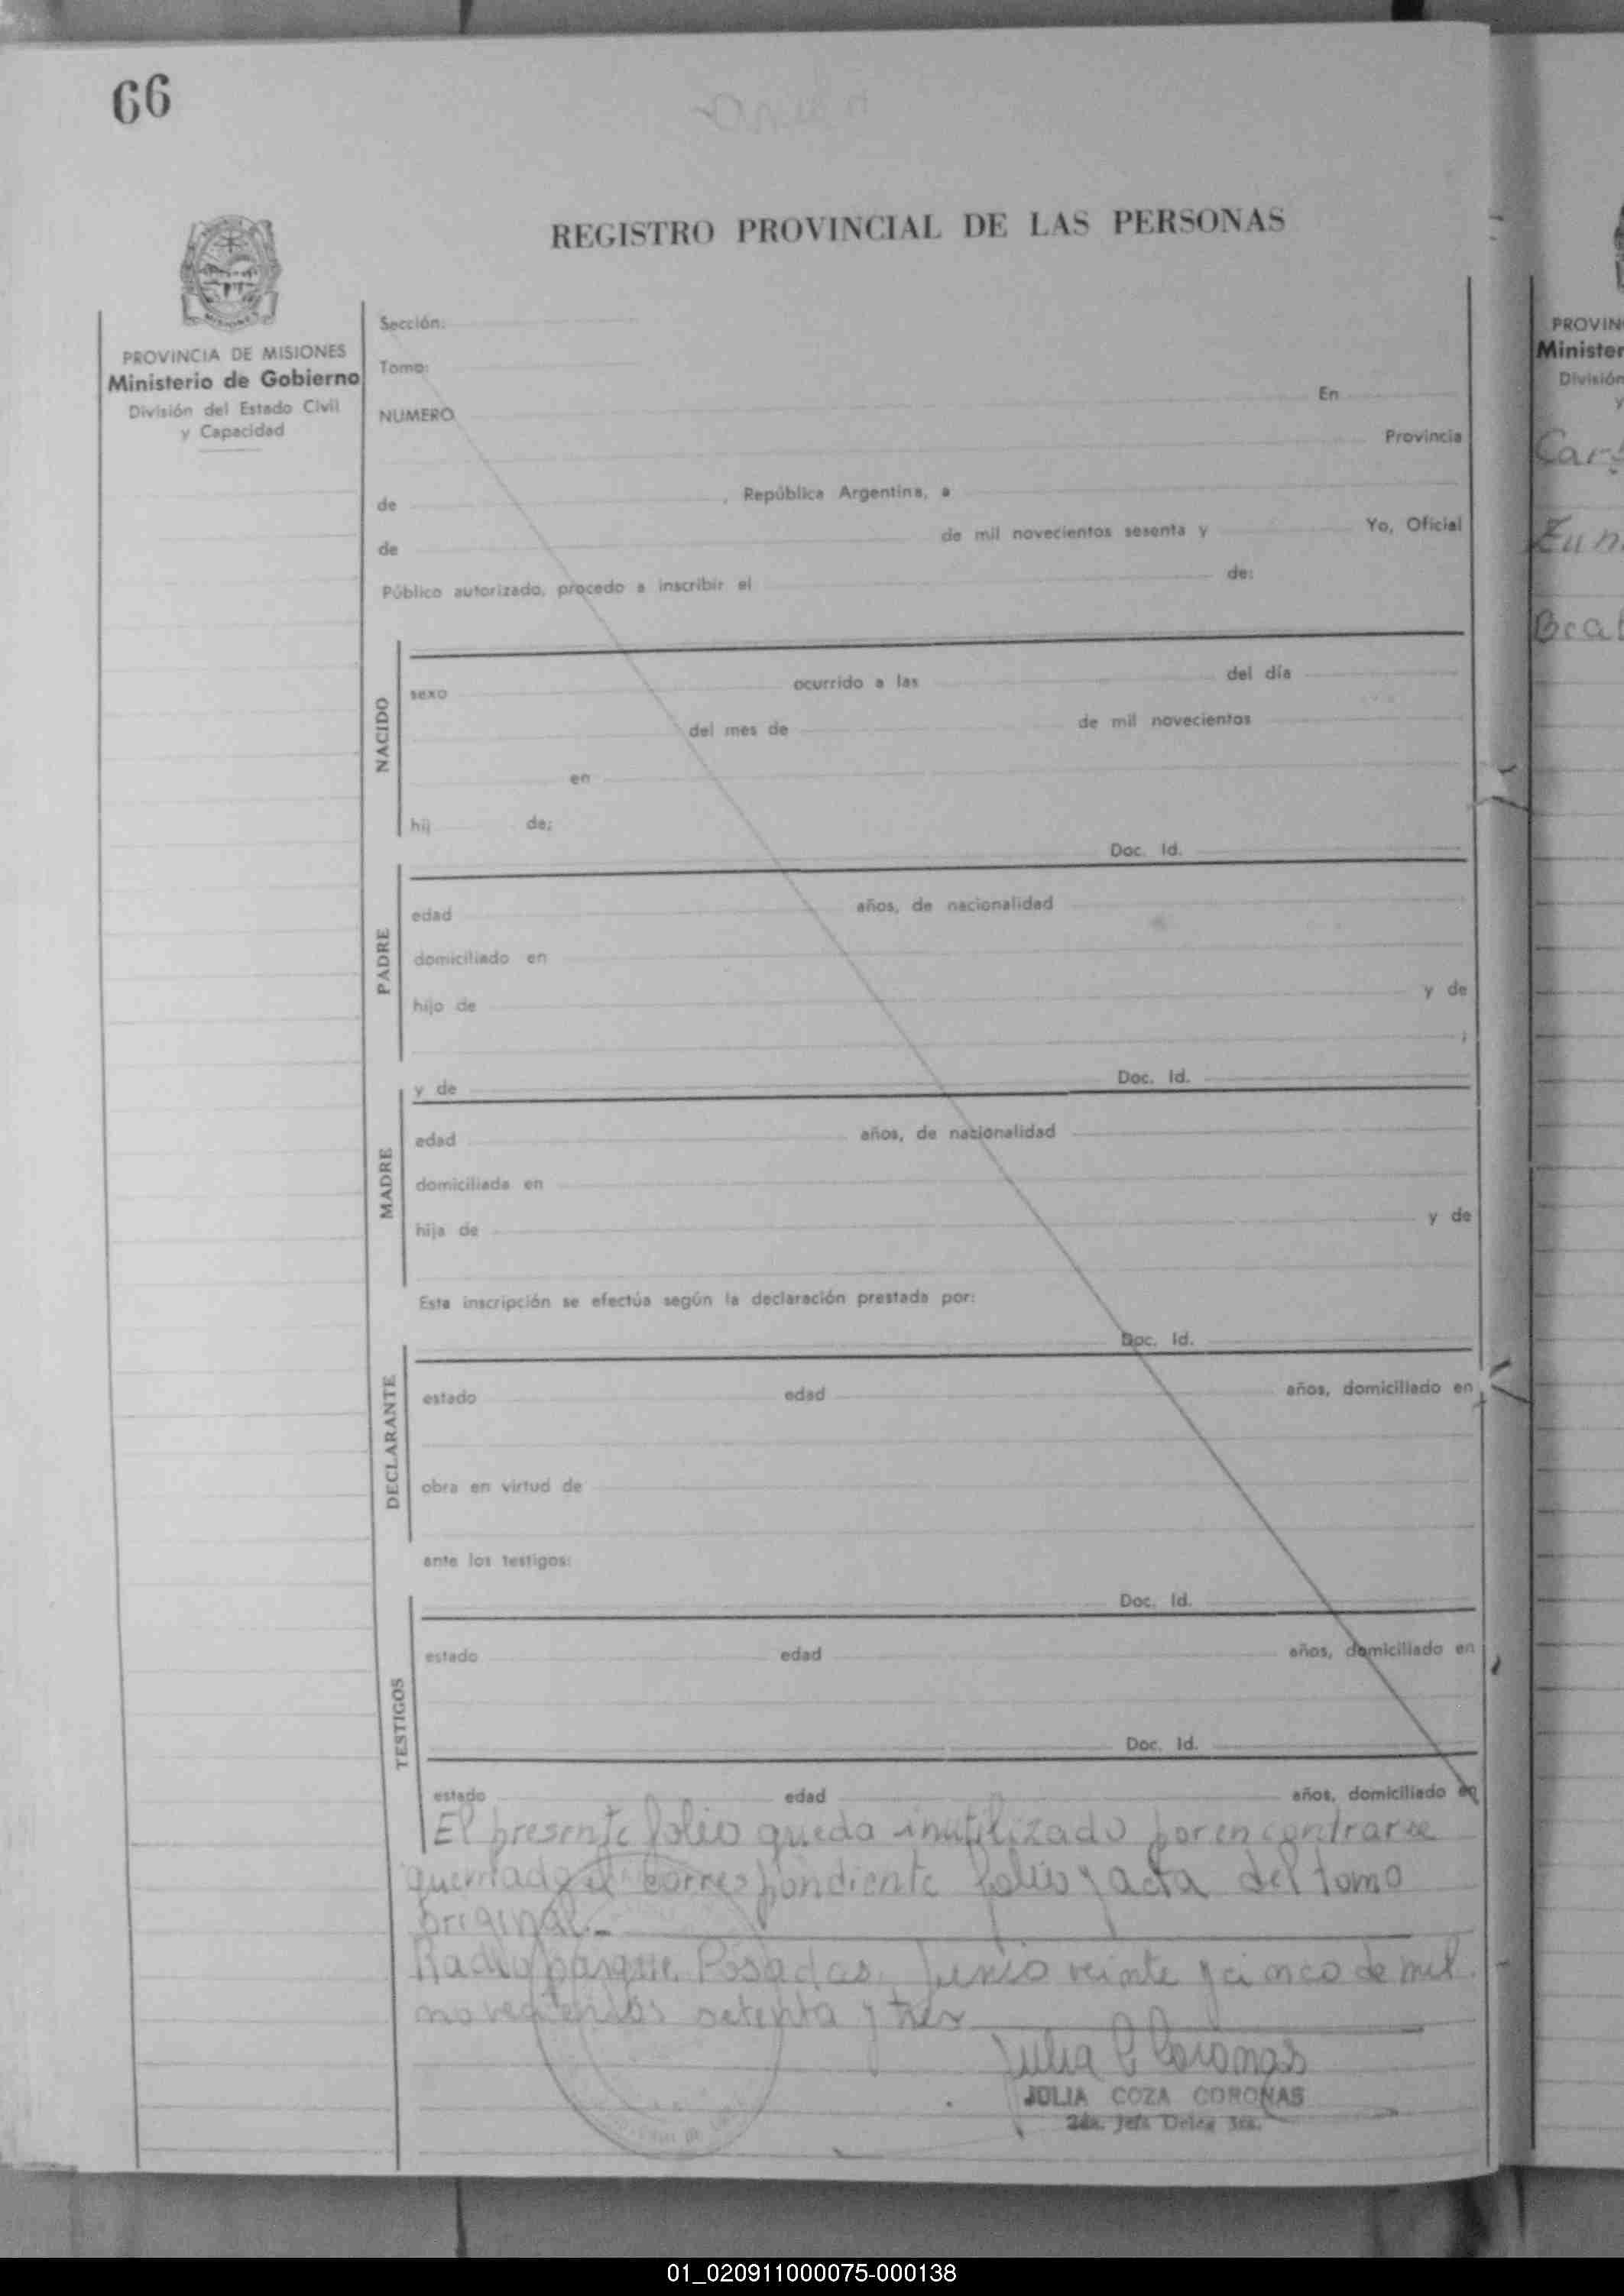 66
REGISTRO PROVINCIAL DE LAS PERSONAS
MISIONES
PROVINCIA DE MISIONES
Ministerio de Gobierno
División del Estado Civil
y Capacidad
Sección:
Tomo:
NUMERO En
Provincia
de , República Argentina, a
de de mil novecientos sesenta y Yo, Oficial
Público autorizado, procedo a inscribir el de:
NACIDO
sexo ocurrido a las del día
del mes de de mil novecientos
en
hij de:
Doc. Id.
PADRE
edad años, de nacionalidad
domiciliado en
hijo de y de
;
y de Doc. Id.
MADRE
edad años, de nacionalidad
domiciliada en
hija de y de
Esta inscripción se efectúa según la declaración prestada por:
Doc. Id.
DECLARANTE
estado edad años, domiciliado en
obra en virtud de
ante los testigos:
Doc. Id.
TESTIGOS
estado edad años, domiciliado en
Doc. Id.
estado edad años, domiciliado en
El presente folio queda inutilizado por encontrarse
quemado el correspondiente folio y acta del tomo
original.-
Radioparque Posadas, Junio veinte y cinco de mil
novecientos setenta y tres
Julia C Coronas
JULIA COZA CORONAS
2da. Jefa
PROVIN
Minister
División
y
Car
01_020911000075-000138